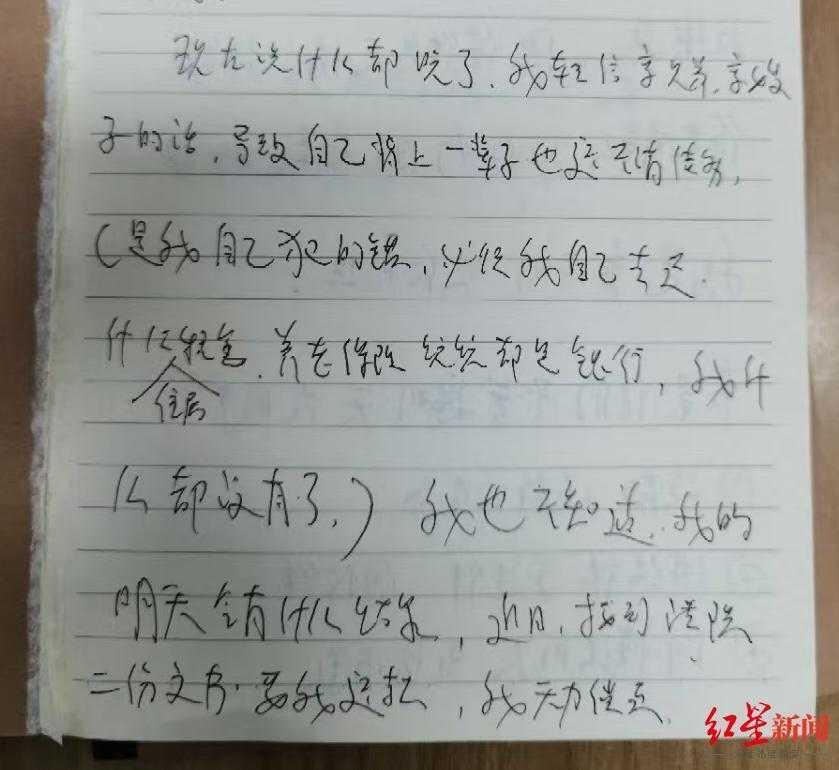 现在说什么都晚了.我轻信章兄弟.章嫂
子的话,导致自己背上一辈子也还不清债务,
(是我自己犯的错,必须我自己去还.
什么租金.养老保险统统都是银行,我什
住房
么都没有了,)我也不知道.我的
明天会有什么结果,近日.接到法院
二份文书.要我还款,我无力偿还.
红星新闻